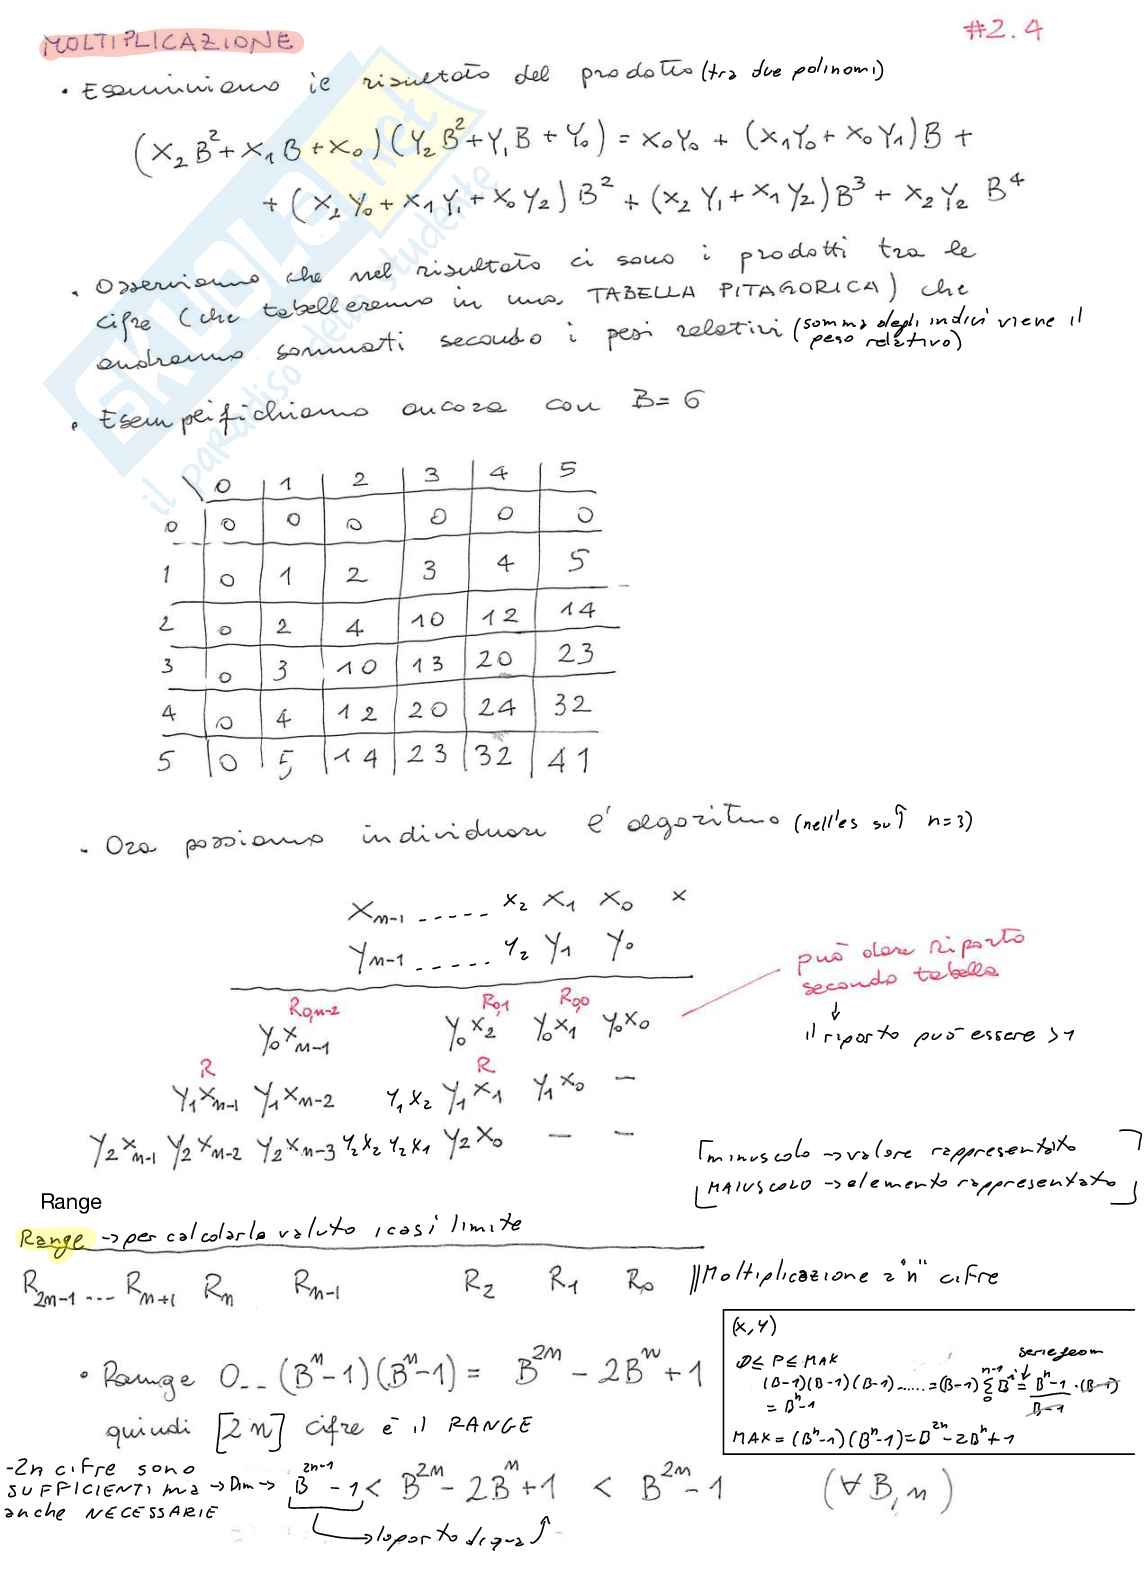 MOLTIPLICAZIONE
#2.4
• Esaminiamo il risultato del prodotto (tra due polinomi)
(X₂B²+X₁B+X₀)(Y₂B²+Y₁B+Y₀) = X₀Y₀ + (X₁Y₀+X₀Y₁)B +
+ (X₂Y₀+X₁Y₁+X₀Y₂)B² + (X₂Y₁+X₁Y₂)B³ + X₂Y₂ B⁴
• Osserviamo che nel risultato ci sono i prodotti tra le
cifre (che tabelleremo in una TABELLA PITAGORICA) che
andranno sommati secondo i pesi relativi (somma degli indici viene il
peso relativo)
• Esemplifichiamo ancora con B=6
\ 0 1 2 3 4 5
0 0 0 0 0 0 0
1 0 1 2 3 4 5
2 0 2 4 10 12 14
3 0 3 10 13 20 23
4 0 4 12 20 24 32
5 0 5 14 23 32 41
• Ora possiamo individuare l'algoritmo (nell'es su↑ n=3)
Xₙ₋₁ ----- X₂ X₁ X₀ ×
Yₙ₋₁ ----- Y₂ Y₁ Y₀
può dare riporto
secondo tabella
↓
il riporto può essere >1
R₀,ₙ₋₂ R₀,₁ R₀,₀
Y₀Xₙ₋₁ Y₀X₂ Y₀X₁ Y₀X₀
R R
Y₁Xₙ₋₁ Y₁Xₙ₋₂ Y₁X₂ Y₁X₁ Y₁X₀ —
Y₂Xₙ₋₁ Y₂Xₙ₋₂ Y₂Xₙ₋₃ Y₂X₂ Y₂X₁ Y₂X₀ — —
minuscolo → valore rappresentato
MAIUSCOLO → elemento rappresentato
Range
Range → per calcolarlo valuto i casi limite
R₂ₙ₋₁ ... Rₙ₊₁ Rₙ Rₙ₋₁ R₂ R₁ R₀ // Moltiplicazione a "n" cifre
(x,y)
0≤ P ≤ MAX
serie geom
(B-1)(B-1)(B-1)...... = (B-1) Σ₀ⁿ⁻¹ Bⁱ = Bⁿ-1/B-1 · (B-1)
= Bⁿ-1
MAX = (Bⁿ-1)(Bⁿ-1) = B²ⁿ-2Bⁿ+1
• Range 0.. (Bⁿ-1)(Bⁿ-1) = B²ⁿ - 2Bⁿ + 1
quindi [2n] cifre è il RANGE
-2n cifre sono
SUFFICIENTI ma → Dim → B²ⁿ⁻¹ -1 < B²ⁿ - 2Bⁿ+1 < B²ⁿ-1 (∀ B, n)
anche NECESSARIE
→ lo porto di qua
SKUOLA.net
il paradiso dello studente